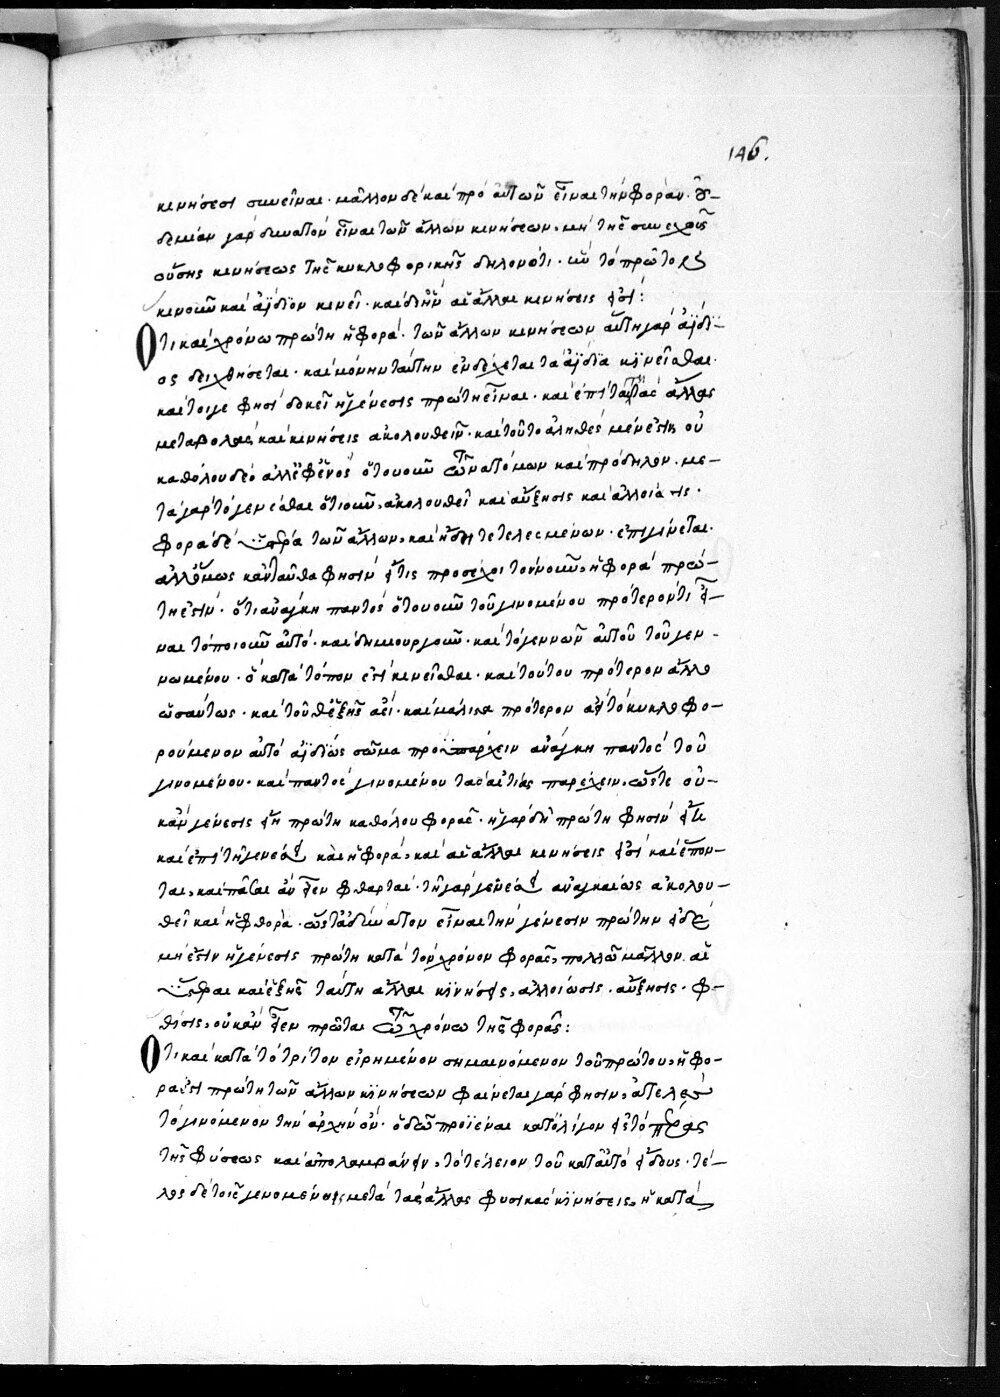 146.
κινήσεσι συνεῖναι. μᾶλλον δὲ καὶ πρὸ αὐτῶν εἶναι τὴν φοράν. οὐ-
δεμίαν γὰρ δυνατὸν εἶναι τῶν ἄλλων κινήσεων, μὴ τῆς συνεχοῦς
οὔσης κινήσεως τῆς κυκλοφορικῆς δηλονότι. ἣν τὸ πρώτως
κινοῦν καὶ ἀΐδιον κινεῖ. καὶ δι' ἣν αἱ ἄλλαι κινήσεις εἰσί:
Ὅτι καὶ χρόνω πρώτη ἡ φορὰ. τῶν ἄλλων κινήσεων αὕτη γὰρ ἀΐδι-
ος δειχθήσεται. καὶ μόνην ταύτην ἐνδέχεται τὰ ἀΐδια κινεῖσθαι.
καί τοι γε φησὶ δοκεῖ ἡ γένεσις πρώτη εἶναι. καὶ ἐπὶ ταύτας ἄλλας
μεταβολὰς καὶ κινήσεις ἀκολουθεῖν. καὶ τοῦτο ἀληθὲς μέν ἐστιν οὐ
καθόλου δὲ ἀλλ' ἐφ' ἑνὸς ὁτουοῦν τῶν ἀτόμων καὶ πρόδηλον. με-
τὰ γὰρ τὸ γενέσθαι ὁτιοῦν, ἀκολουθεῖ καὶ αὔξησις καὶ ἀλλοίωσις.
φορὰ δὲ ὑστέρα τῶν ἄλλων, καὶ ἤδη τετελεσμένων. ἐπιγίνεται.
ἀλλ' ὅμως κἀνταῦθα φησὶν εἴ τις προσέχοι τὸν νοῦν, ἡ φορὰ πρώ-
τη ἐστίν. ὅτι ἀνάγκη παντὸς ὁτουοῦν τοῦ γινομένου πρότερόν τι εἶ-
ναι τὸ ποιοῦν αὐτό. καὶ δημιουργοῦν. καὶ τὸ γεννῶν αὐτοῦ τοῦ γεν-
νωμένου. ὃ κατὰ τόπον ἐστὶ κινεῖσθαι. καὶ τούτου πρότερον ἄλλο
ὡσαύτως. καὶ τοῦθ' ἑξῆς ἀεί. καὶ μάλιστα πρότερον αὖ τὸ κυκλοφο-
ρούμενον αὐτὸ ἀϊδίως σῶμα προϋπάρχειν ἀνάγκη παντὸς τοῦ
γινομένου. καὶ παντὸς γινομένου τὰς αἰτίας παρέχειν. ὥστε οὐ-
κἂν γένεσις εἴη πρώτη καθόλου φορᾶς. ἡ γὰρ δὴ πρώτη φησὶν εἴτε
καὶ ἐπὶ τῆ γενέσει καὶ ἡ φορὰ, καὶ αἱ ἄλλαι κινήσεις εἰσὶ καὶ ἕπον-
ται, καὶ πᾶσαι ἂν εἶεν φθαρταί. τῆ γὰρ γενέσει ἀναγκαίως ἀκολου-
θεῖ καὶ ἡ φθορά. ὥστ' ἀδύνατον εἶναι τὴν γένεσιν πρώτην εἰ δὲ
μή ἐστιν ἡ γένεσις πρώτη κατὰ τὸν χρόνον φορᾶς, πολλῶ μᾶλλον αἱ
ὕστεραι καὶ ἑξῆς ταύτη ἄλλαι κινήσεις, ἀλλοίωσις. αὔξησις. φ-
θίσις, οὐκ ἂν εἶεν πρῶται τῶ χρόνω τῆς φορᾶς:
Ὅτι καὶ κατὰ τὸ τρίτον εἰρημένον σημαινόμενον τοῦ πρώτου, ἡ φο-
ρά ἐστι πρώτη τῶν ἄλλων κινήσεων φαίνεται γὰρ φησὶν, ἀτελὲς
τὸ γινόμενον τὴν ἀρχὴν ὄν. ὁδῶ προϊέναι κατ' ὀλίγον εἰς τὸ πέρας
τῆς φύσεως καὶ ἀπολαμβάνειν, τὸ τέλειον τοῦ κατ' αὐτὸ εἴδους. τέ-
λος δὲ τοῖς γενομένοις, μετὰ τὰς ἄλλας φυσικὰς κινήσεις, ἡ κατὰ